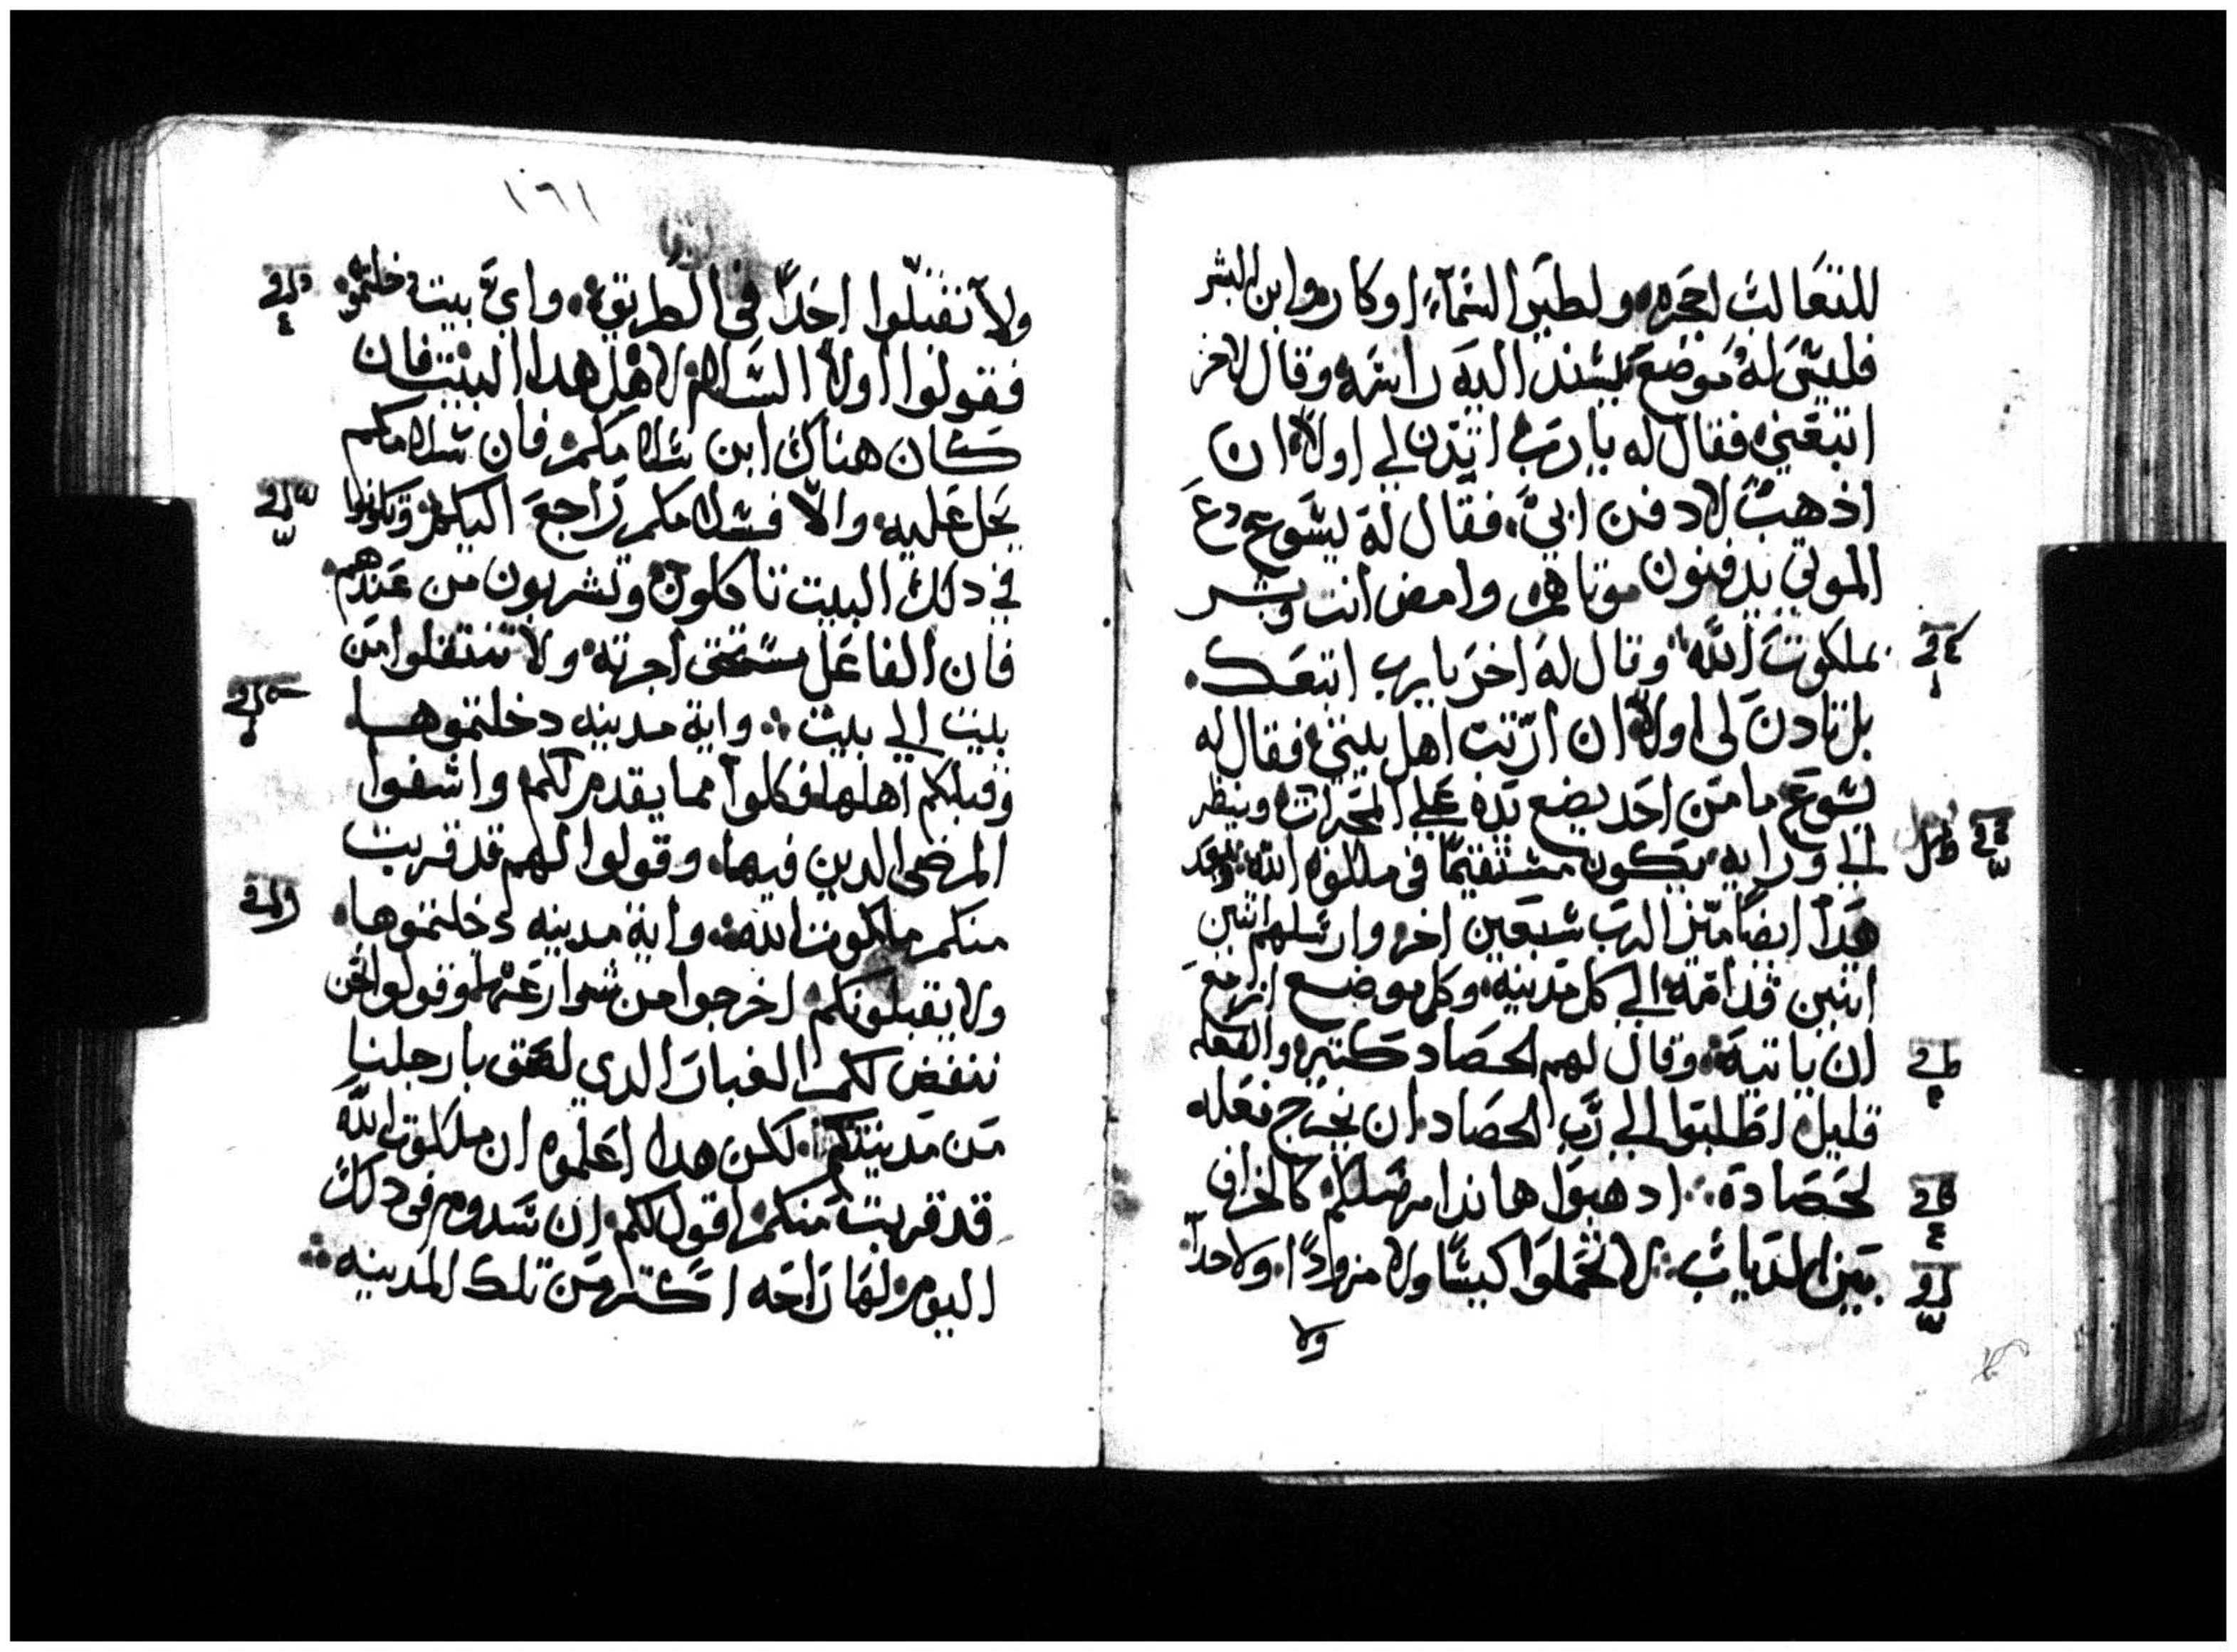 للتعالب اجحره ولطير السمآء اوكار وابن البشر
فليس له موضع يسند اليه راسه وقال لاخر
اتبعني فقال له يارب ائدن لي اولاً ان
ادهب لادفن ابي، فقال له يسوع دع
الموتي يدفنون موتاهم وامض انت وبشر
بملكوت الله وقال له اخر يارب اتبعك
بل تادن لي اولاً ان ارتب اهل بيتي فقال له
يسوع ما من احد يضع يده علي المحرات وينظر
الي ورايه يكون مستقيمًا في ملكوة الله وبعد
هدا ايضًا ميز الرب سبعين اخر وارسلهم اتنين
اتنين قدامه الي كل مدينه وكل موضع ازمع
ان ياتيه وقال لهم الحصاد كتير والفعله
قليل اطلبوا الي رب الحصاد ان يخرج فعله
لحصاده ادهبوا هاندا مرسلكم كالخراف
بين الدياب لا تحملوا كيسًا ولا مزودًا ولا حداً
ولا
١٦١
ولا تقبلوا احداً في الطريق واي بيت دخلتموه
فقولوا اولاً السلام لاهل هدا البيت فان
كان هناك ابن سلامكم فان سلامكم
يحل عليه والا فسلامكم راجع اليكم وكونوا
في دلك البيت تاكلون وتشربون من عندهم
فان الفاعل مستحق اجرته ولا تنتقلوا من
بيت الي بيت واية مدينه دخلتموها
وقبلكم اهلها فكلوا مما يقدم لكم واشفوا
المرضي الدين فيها وقولوا لهم قد قربت
منكم ملكوت الله واية مدينه دخلتموها
ولا يقبلونكم اخرجوا من شوارعها وقولوا نحن
ننفض لكم الغبار الدي لصق بارجلنا
من مدينتكم لكن هدا اعلموه ان ملكوت الله
قد قربت منكم اقول لكم ان سدوم في دلك
اليوم لها راحه اكتر من تلك المدينه